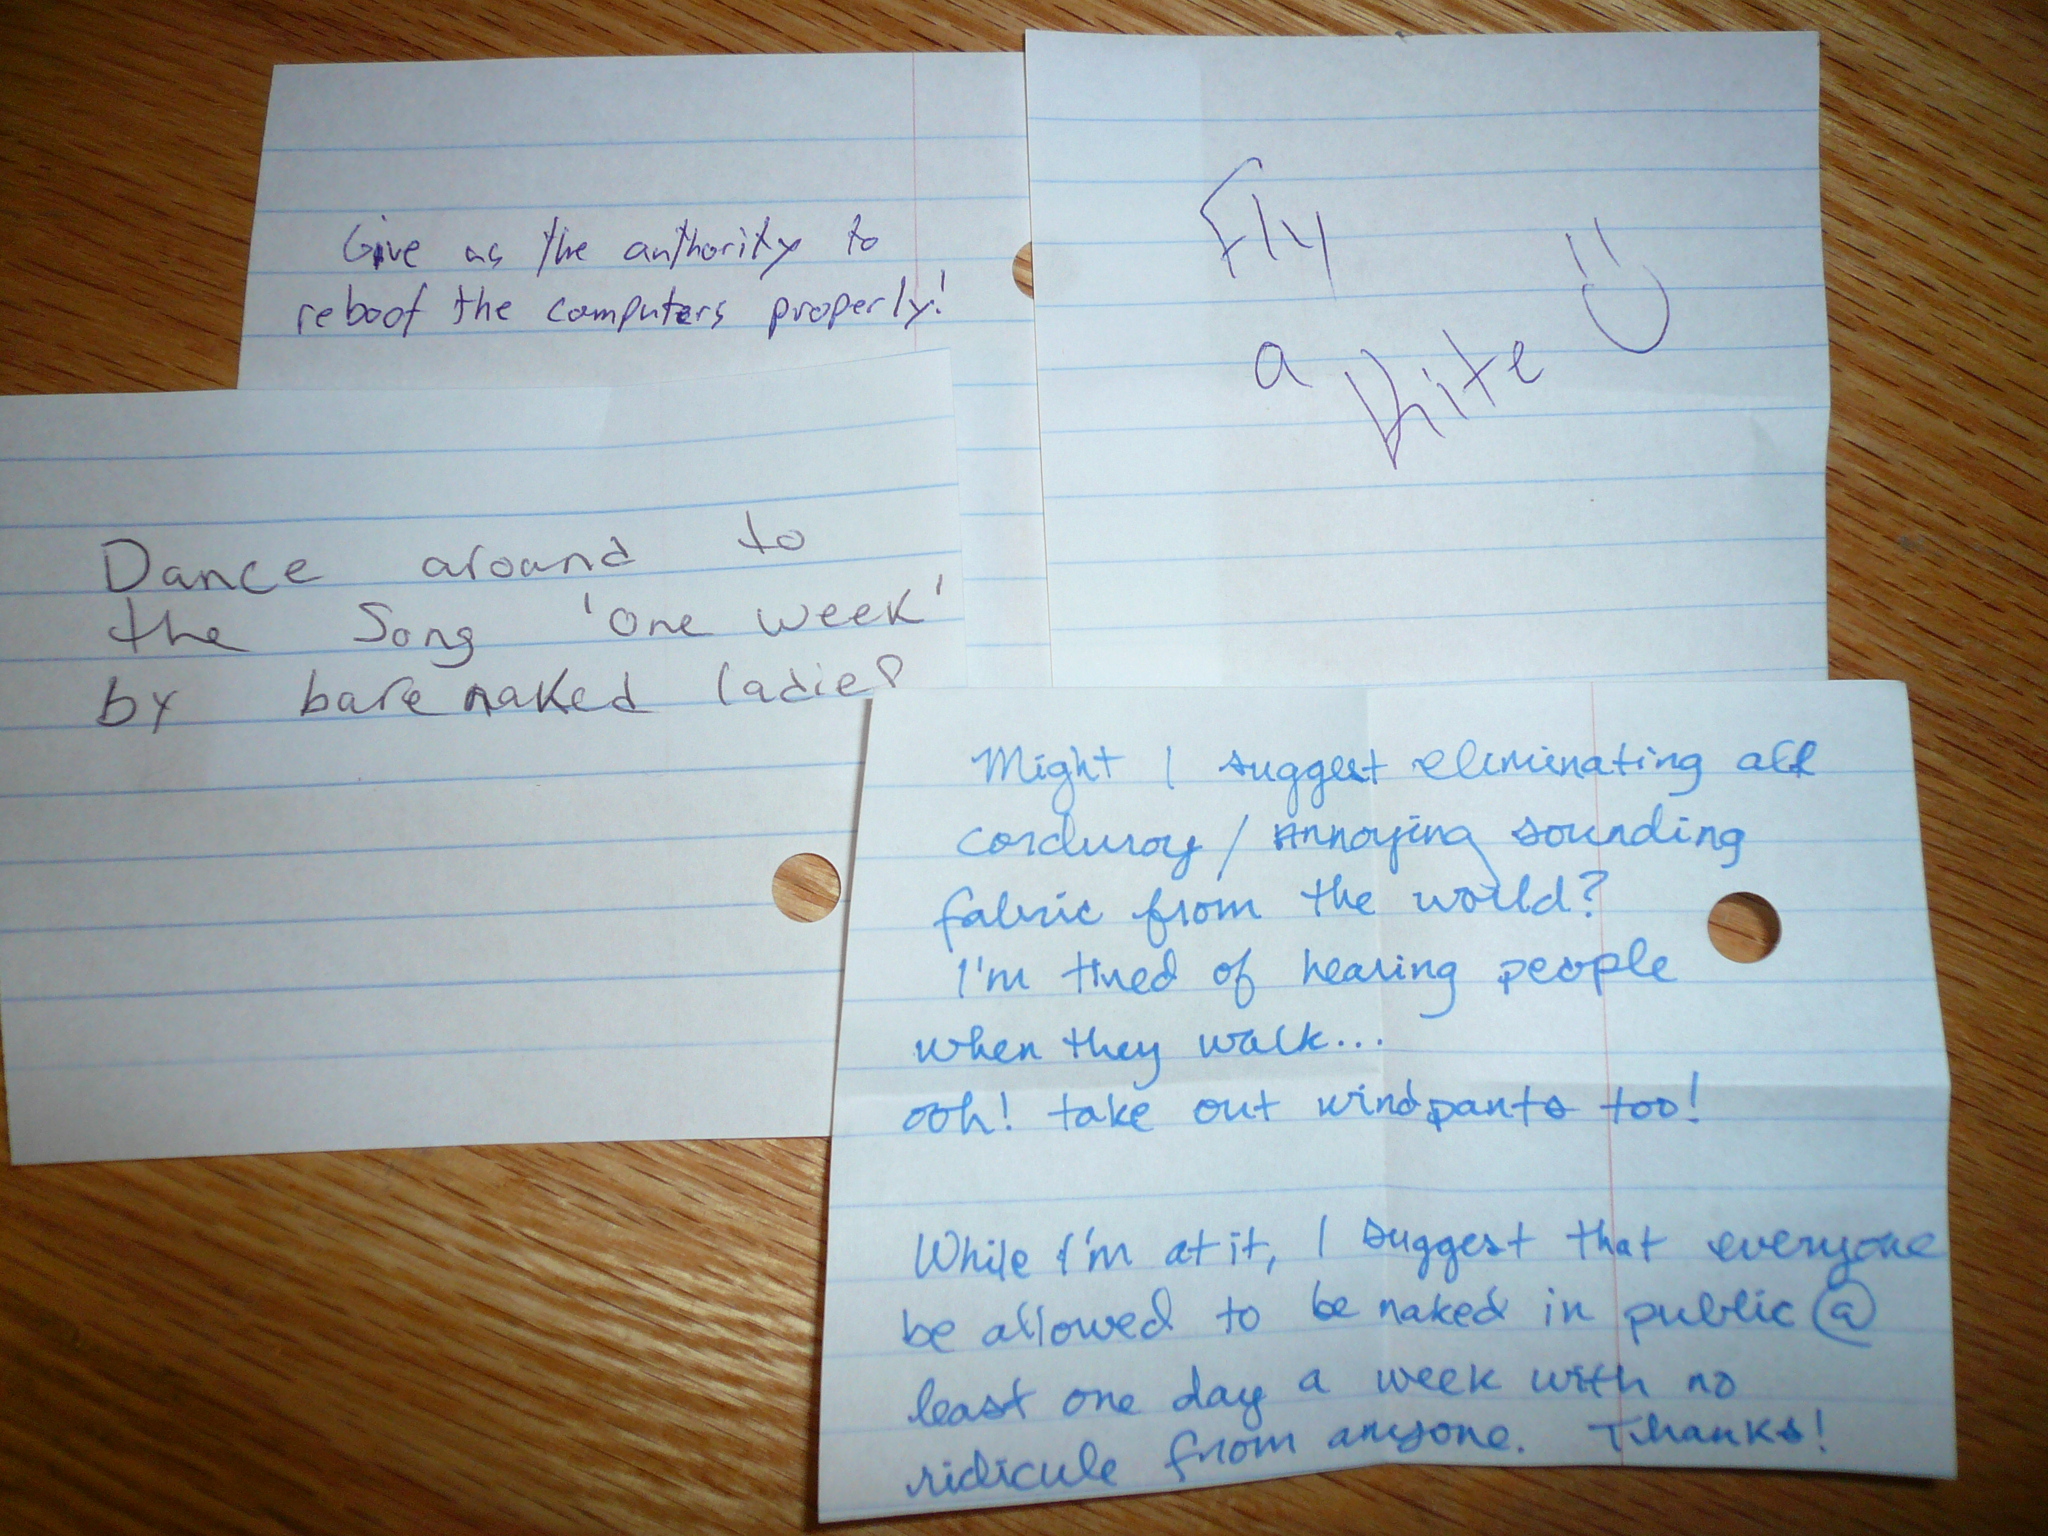 Give us the authority to
reboot the computers properly!
Fly
a Kite
Dance around to
the Song 'One week'
by bare naked ladies
Might I suggest eliminating all
corduroy / annoying sounding
fabric from the world?
I'm tired of hearing people
when they walk...
ooh! take out windpants too!
While I'm at it, I suggest that everyone
be allowed to be naked in public @
least one day a week with no
ridicule from anyone. Thanks!